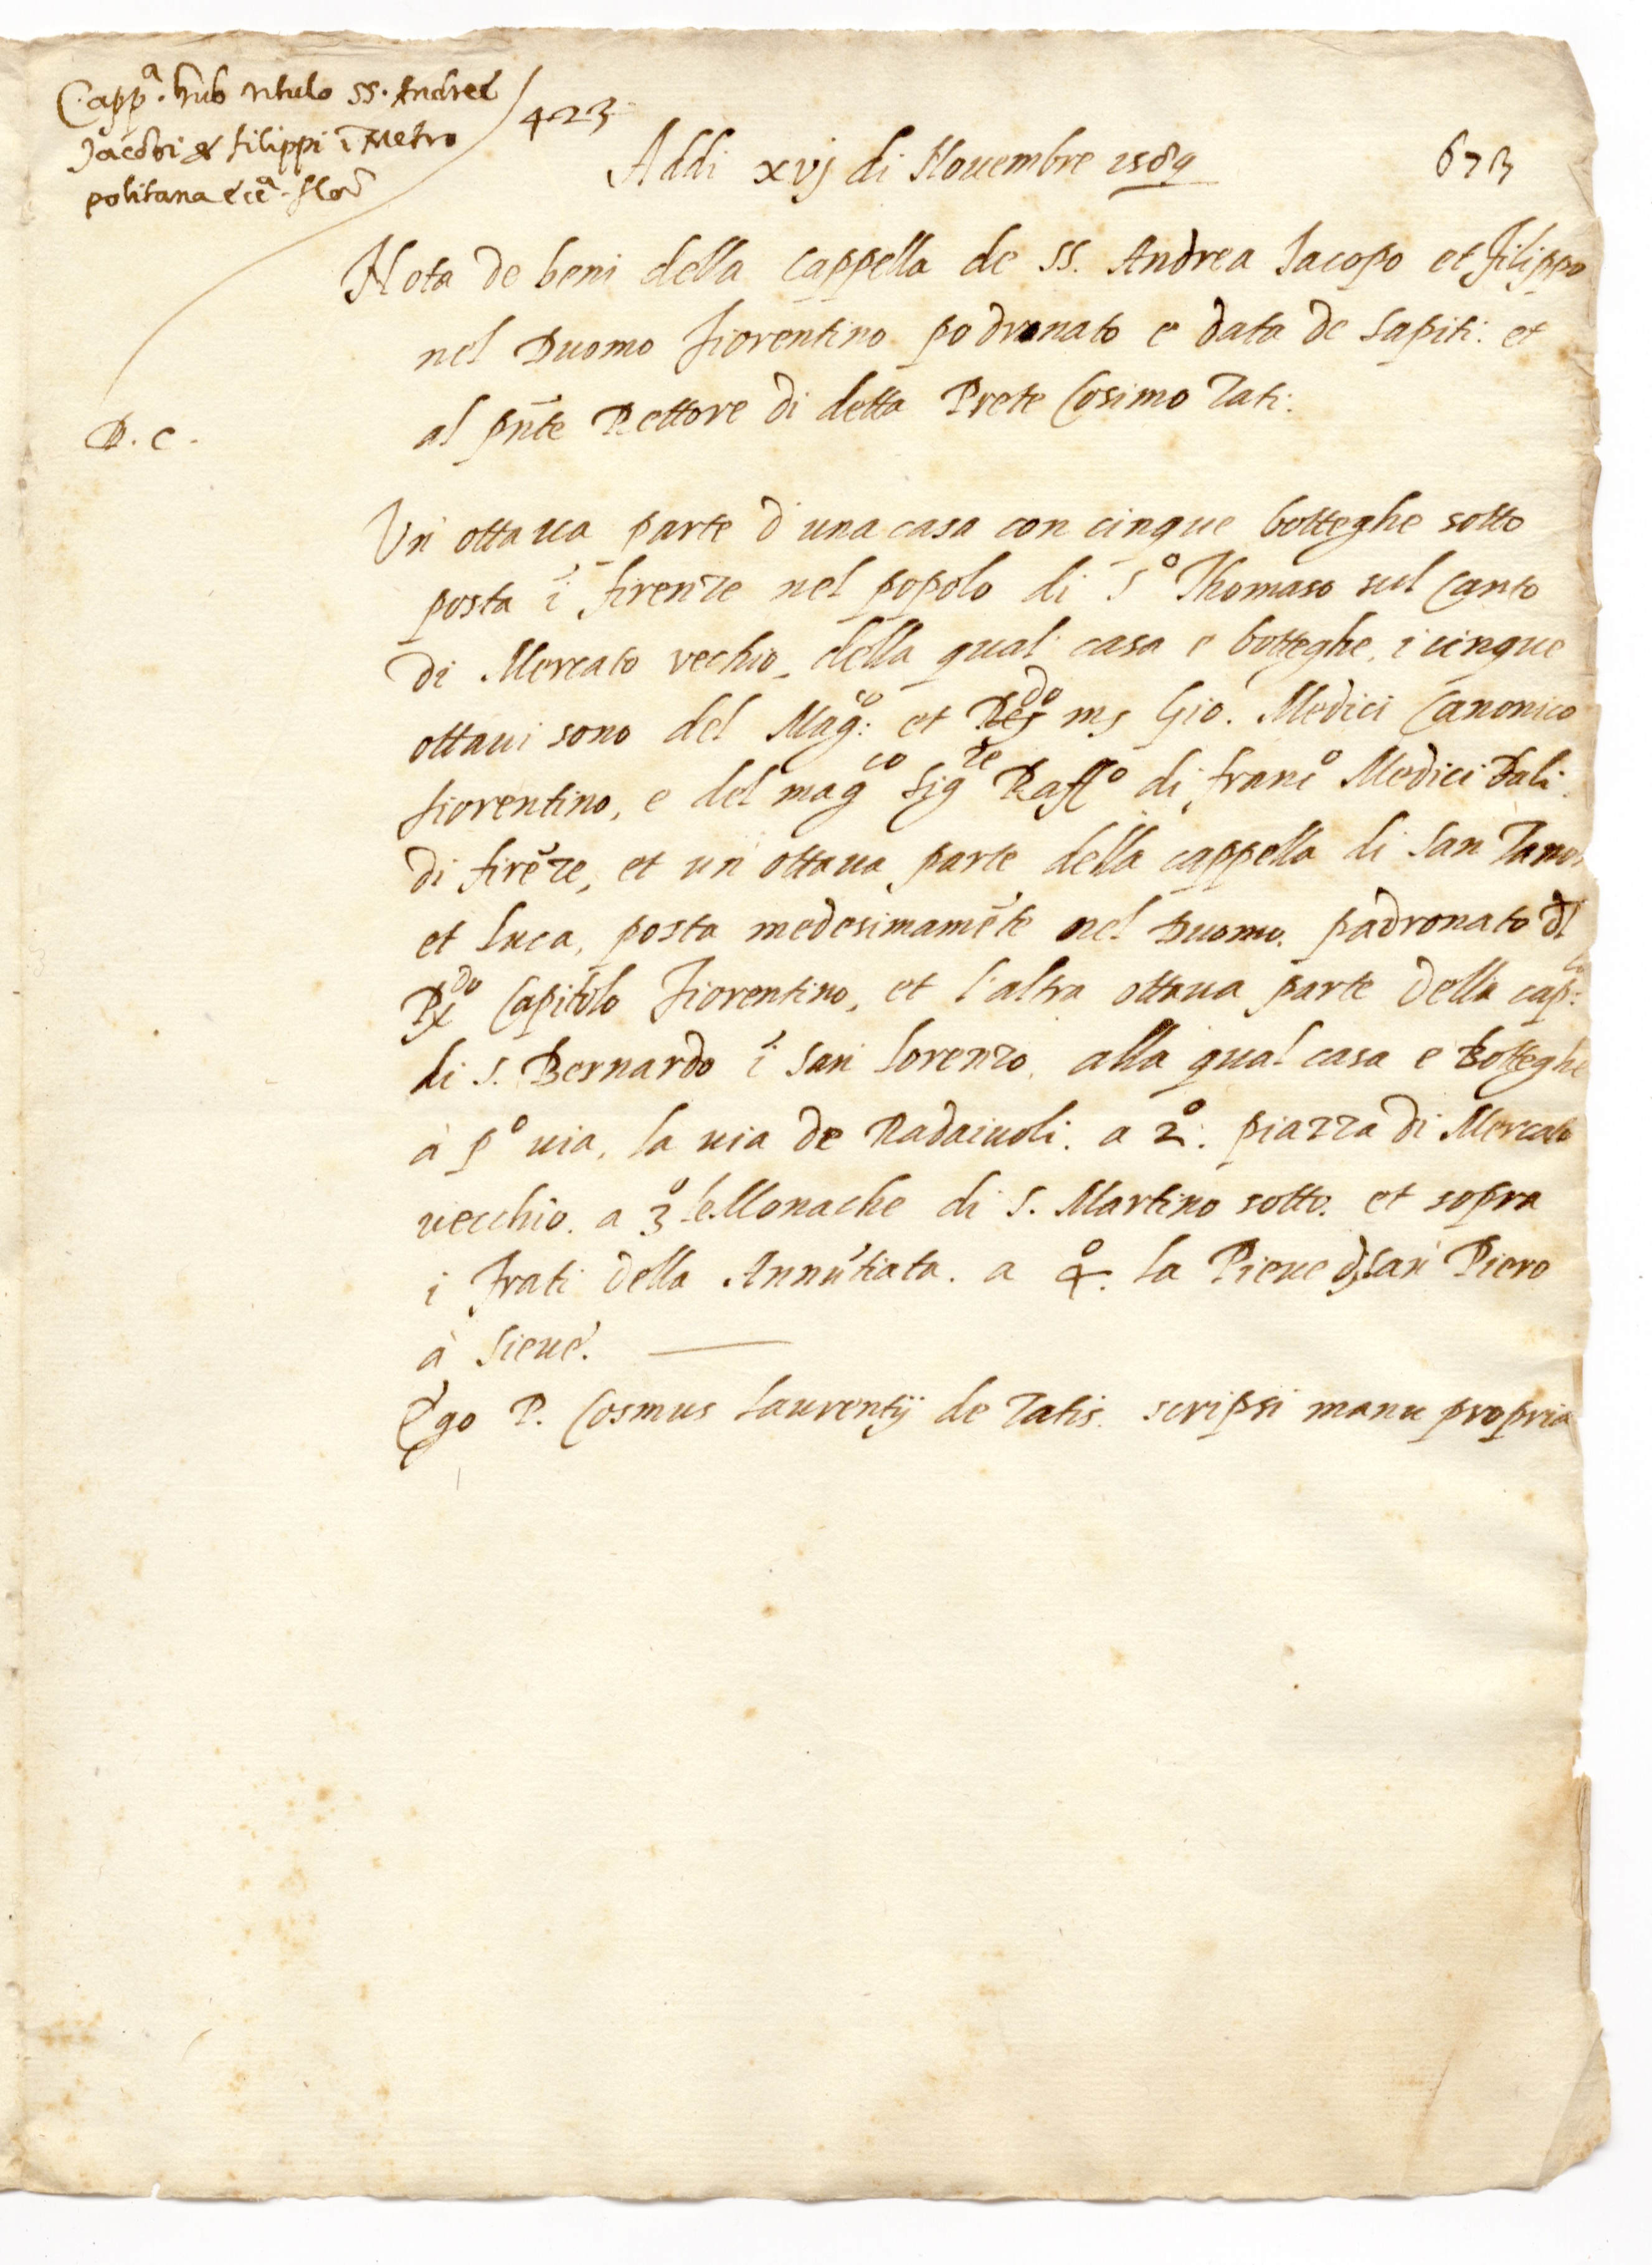 Capp.ª sub titulo SS. Andreę
Jacobi & filippi ĩ Metro
politana ecc.ª flor̃
423
673
Addi xvj di Nouembre 1589
Nota de beni della Cappella de SS. Andrea Jacopo et filippo
nel Duomo fiorentino padronato e data de Sapiti: et
al pñte Rettore di detta Prete Cosimo Tati:
D. C.
Un ottaua parte d una casa con cinque botteghe sotto
posta ĩ firenze nel popolo di S.º Thomaso sul Canto
di Mercato vechio, della qual casa e botteghe, i cinque
ottaui sono del Mag:co et R.do ms Gio. Medici Canonico
fiorentino, e del mag.co Sig.re Raff.º di franc.º Medici Bali
di firẽze, et un ottaua parte della cappella di San
et Luca, posta medesimamẽte nel Duomo. padronato dl
R.do Capitolo fiorentino, et l'altra ottaua parte della cap:
di S. Bernardo ĩ San Lorenzo. alla qual casa e botteghe
à pº uia, la uia de Nadaiuoli. a 2º. piazza di Mercato
vecchio. a 3º le Monache di S. Martino sotto. et sopra
i frati della Annũtiata. a 4º. la Pieue di San Piero
à Sieue.
Ego P. Cosmus Laurentij de Tatis. scripsi manu propria